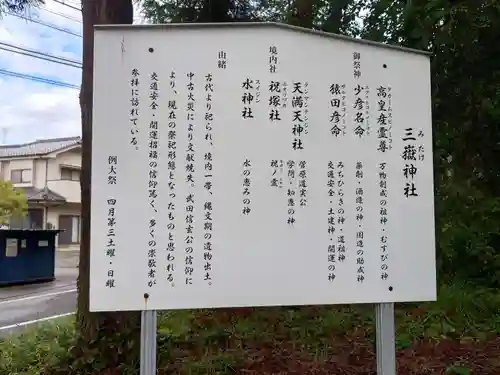 みたけ
三嶽神社
御祭神
高皇産霊尊 万物創成の祖神・むすびの神
少彦名命 薬剤・酒造の神・国造の助成神
猿田彦命 みちひらきの神・道祖神
交通安全・土建神・開運の神
境内社
天満天神社 菅原道実公
学問・知恵の神
祝塚社 祝ノ霊
スイジン
水神社 水の恵みの神
由緒
古代より祀られ、境内一帯、縄文期の遺物出土。
中古火災により文献焼失。武田信玄公の信仰に
より、現在の祭祀形態となったものと思われる。
交通安全・開運招福の信仰篤く、多くの崇敬者が
参拝に訪れている。
例大祭 四月第三土曜・日曜